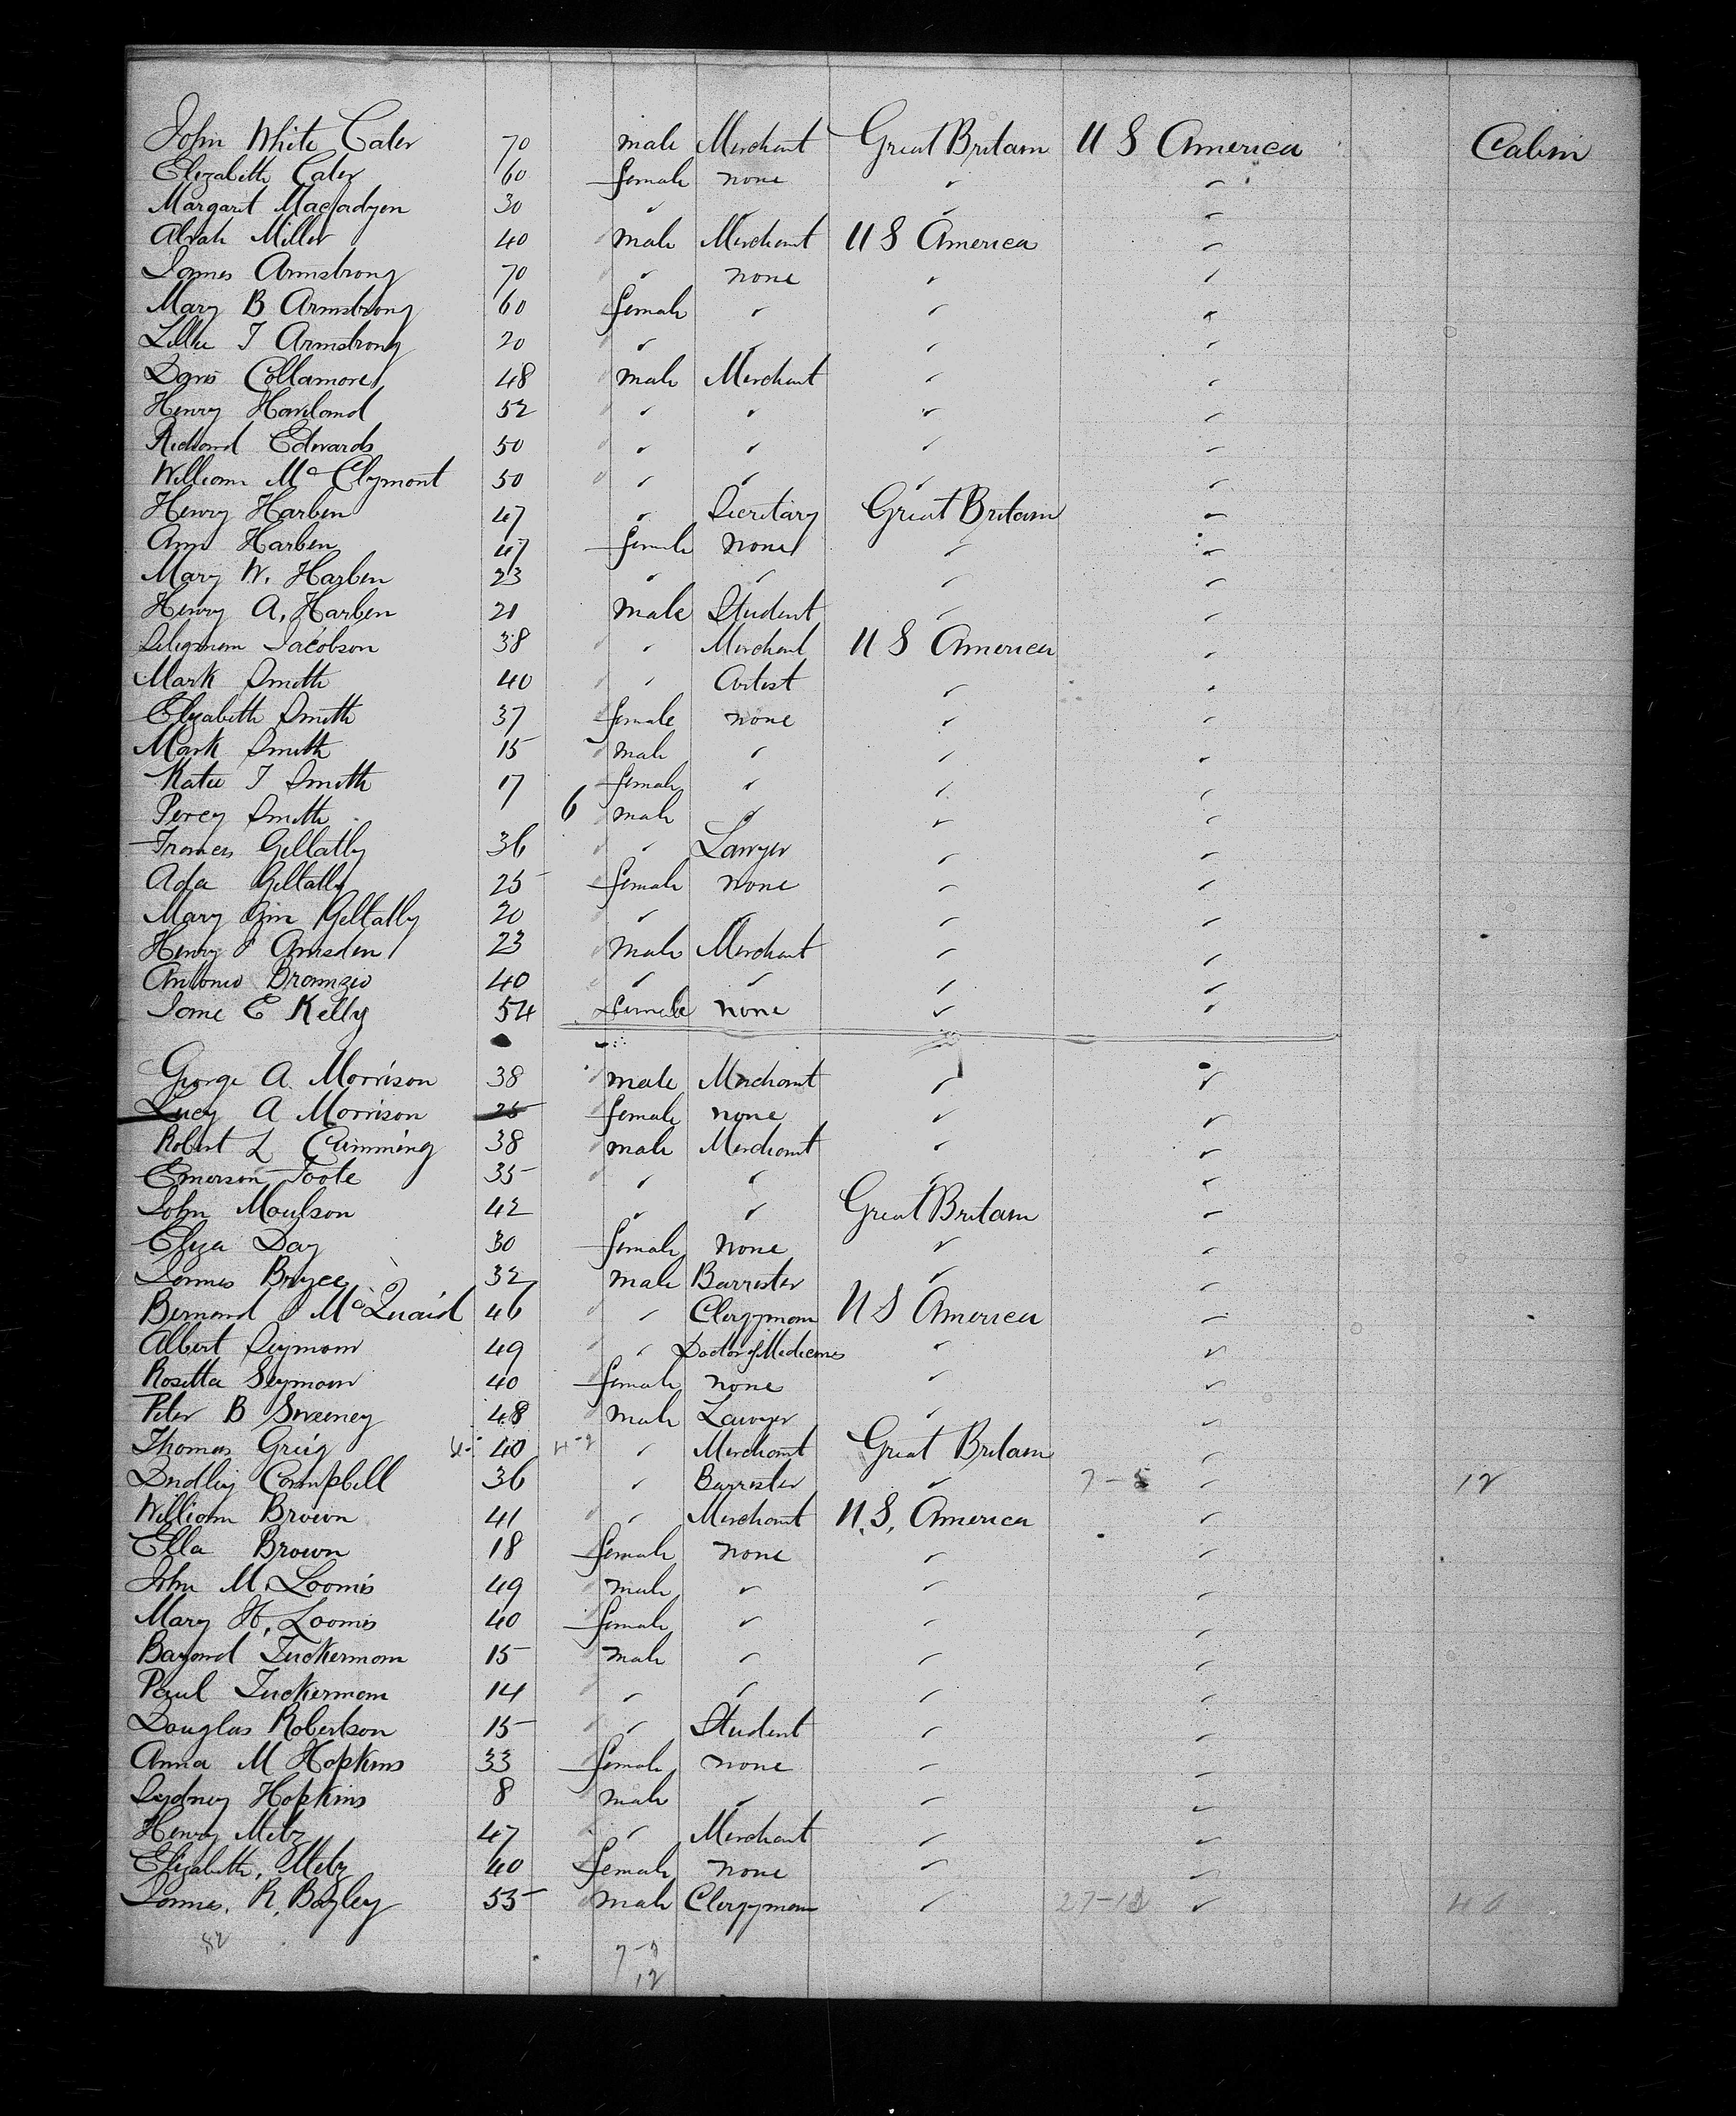 John White Cater 70 male Merchant Great Britain U S America Cabin
Elizabeth Cater 60 female none ✓ ✓
Margaret Macfadyen 30 ✓ ✓ ✓ ✓
Alvah Miller 40 male Merchant U S America ✓
James Armstrong 70 ✓ none ✓ ✓
Mary B Armstrong 60 female ✓ ✓ ✓
Lillie T Armstrong 20 ✓ ✓ ✓ ✓
Davis Collamore 48 male Merchant ✓ ✓
Henry Haviland 52 ✓ ✓ ✓ ✓
Richard Edwards 50 ✓ ✓ ✓ ✓
William Mc Clymont 50 ✓ ✓ ✓ ✓
Henry Harben 47 ✓ Secretary Great Britain ✓
Ann Harben 47 female none ✓ ✓
Mary W. Harben 23 ✓ ✓ ✓ ✓
Henry A. Harben 21 male Student ✓ ✓
Jacobson 38 ✓ Merchant U S America ✓
Mark Smith 40 ✓ Artist ✓ ✓
Elizabeth Smith 37 female none ✓ ✓
Mark Smith 15 male ✓ ✓ ✓
Katie T Smith 17 female ✓ ✓ ✓
Percy Smith 6 male ✓ ✓ ✓
Frances Gellatly 36 ✓ Lawyer ✓ ✓
Ada Gellatly 25 female none ✓ ✓
Mary Ann Gellatly 20 ✓ ✓ ✓ ✓
Henry F Amsden 23 male Merchant ✓ ✓
Antonio 40 ✓ ✓ ✓ ✓
Jane E Kelly 54 female none ✓ ✓
George A. Morrison 38 male Merchant ✓ ✓
Lucy A Morrison 25 female none ✓ ✓
Robert L Cumming 38 male Merchant ✓ ✓
Emerson Foote 35 ✓ ✓ ✓ ✓
John Moulson 42 ✓ ✓ Great Britain ✓
Eliza Day 30 female none ✓ ✓
James Bryce 32 male Barrister ✓ ✓
Bernard J McQuaid 46 ✓ Clergyman U S America ✓
Albert Seymour 49 ✓ Doctor of Medecines ✓ ✓
Rosetta Seymour 40 female none ✓ ✓
Peter B Sweeney 48 male Lawyer ✓ ✓
Thomas Greig 40 4-2 ✓ Merchant Great Britain ✓
Dudley Campbell 36 ✓ Barrister ✓ ✓ 12
William Brown 41 ✓ Merchant U.S. America ✓
Ella Brown 18 female none ✓ ✓
John M. Loomis 49 male ✓ ✓ ✓
Mary H. Loomis 40 female ✓ ✓ ✓
Bayard Tuckerman 15 male ✓ ✓ ✓
Paul Tuckerman 14 ✓ ✓ ✓ ✓
Douglas Robertson 15 ✓ Student ✓ ✓
Anna M Hopkins 33 female none ✓ ✓
Sydney Hopkins 8 male ✓ ✓ ✓
Henry Metz 47 ✓ Merchant ✓ ✓
Elizabeth. Metz 40 female none ✓ ✓
James. R. Bayley 55 male Clergyman ✓ ✓
52
12